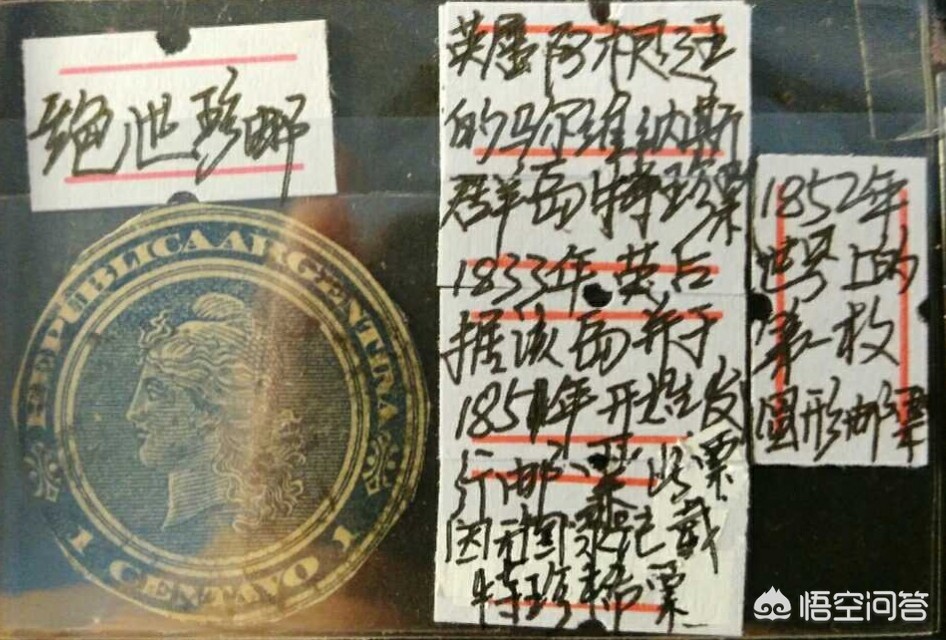 绝世珍邮
REPÚBLICA ARGENTINA
1 CENTAVO 1
英属阿根廷
的马尔维纳斯
群岛特珍票
1833年英占
据该岛并于
1851年开始发
行邮票此票
因无国家记载
特珍稀票
1852年
世界上的
第一枚
圆形邮票
悟空问答